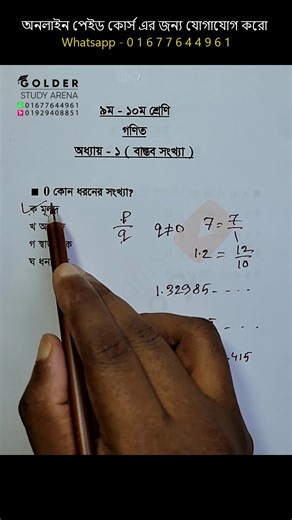 অনলাইন পেইড কোর্স এর জন্য যোগাযোগ করো
Whatsapp - 0 1 6 7 7 6 4 4 9 6 1
GOLDER
STUDY ARENA
01677644961
01929408851
৯ম - ১০ম শ্রেণি
গণিত
অধ্যায় - ১ ( বাস্তব সংখ্যা )
■ 0 কোন ধরনের সংখ্যা?
ক
খ
গ
ঘ
p/q q≠0 7 = 7/1
1.2 = 12/10
1.32985 - - - -